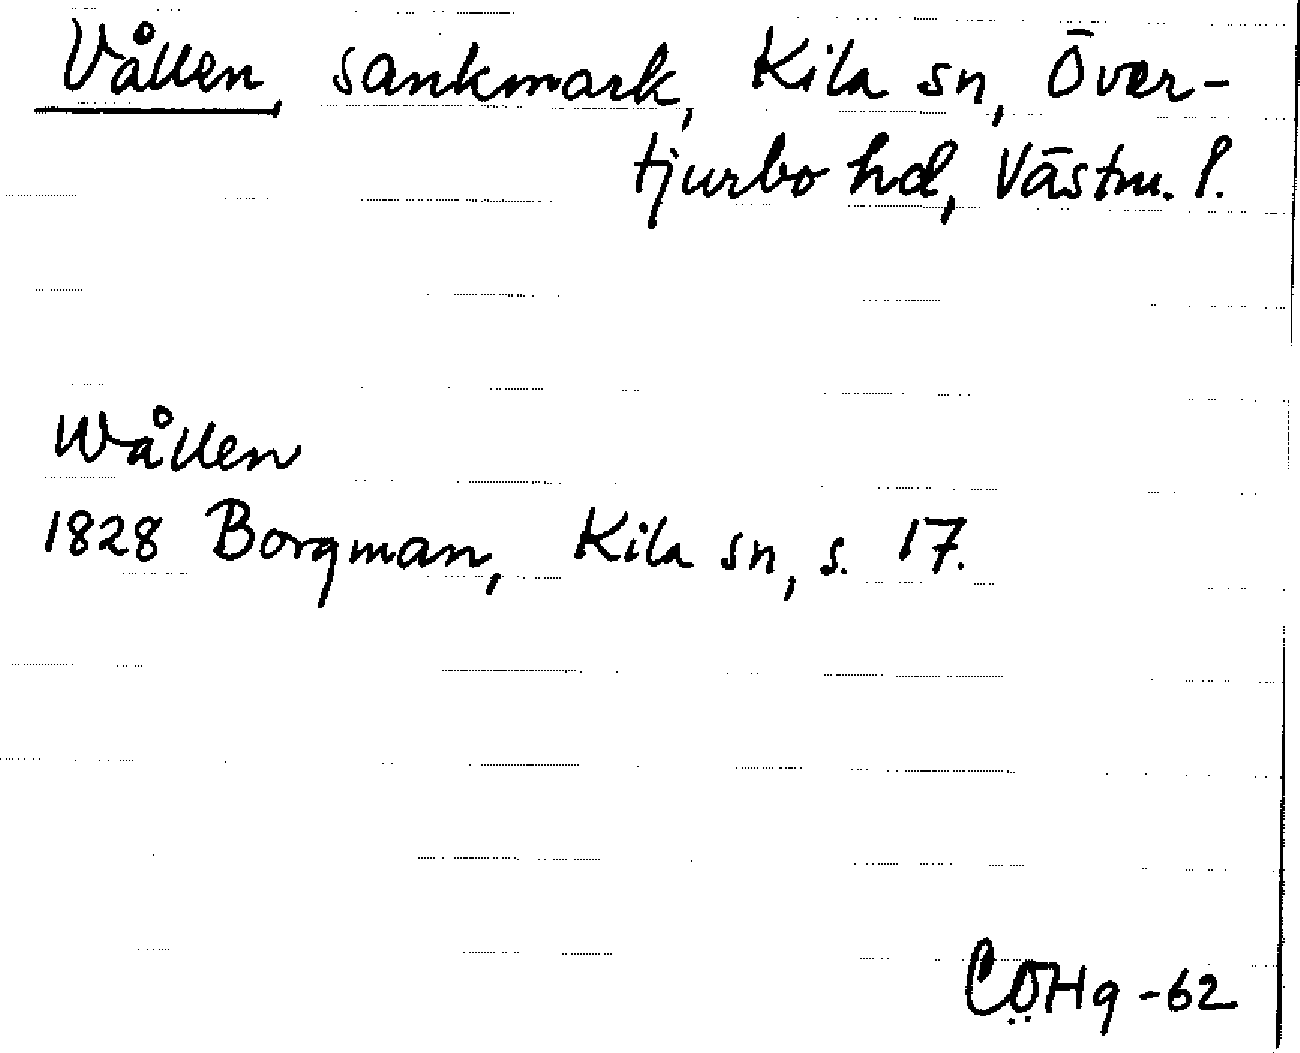 Vållen, sankmark, Kila sn, Över-
tjurbo hd, Västm. l.
Wållen
1828 Borgman, Kila sn, s. 17.
CÖHg -62